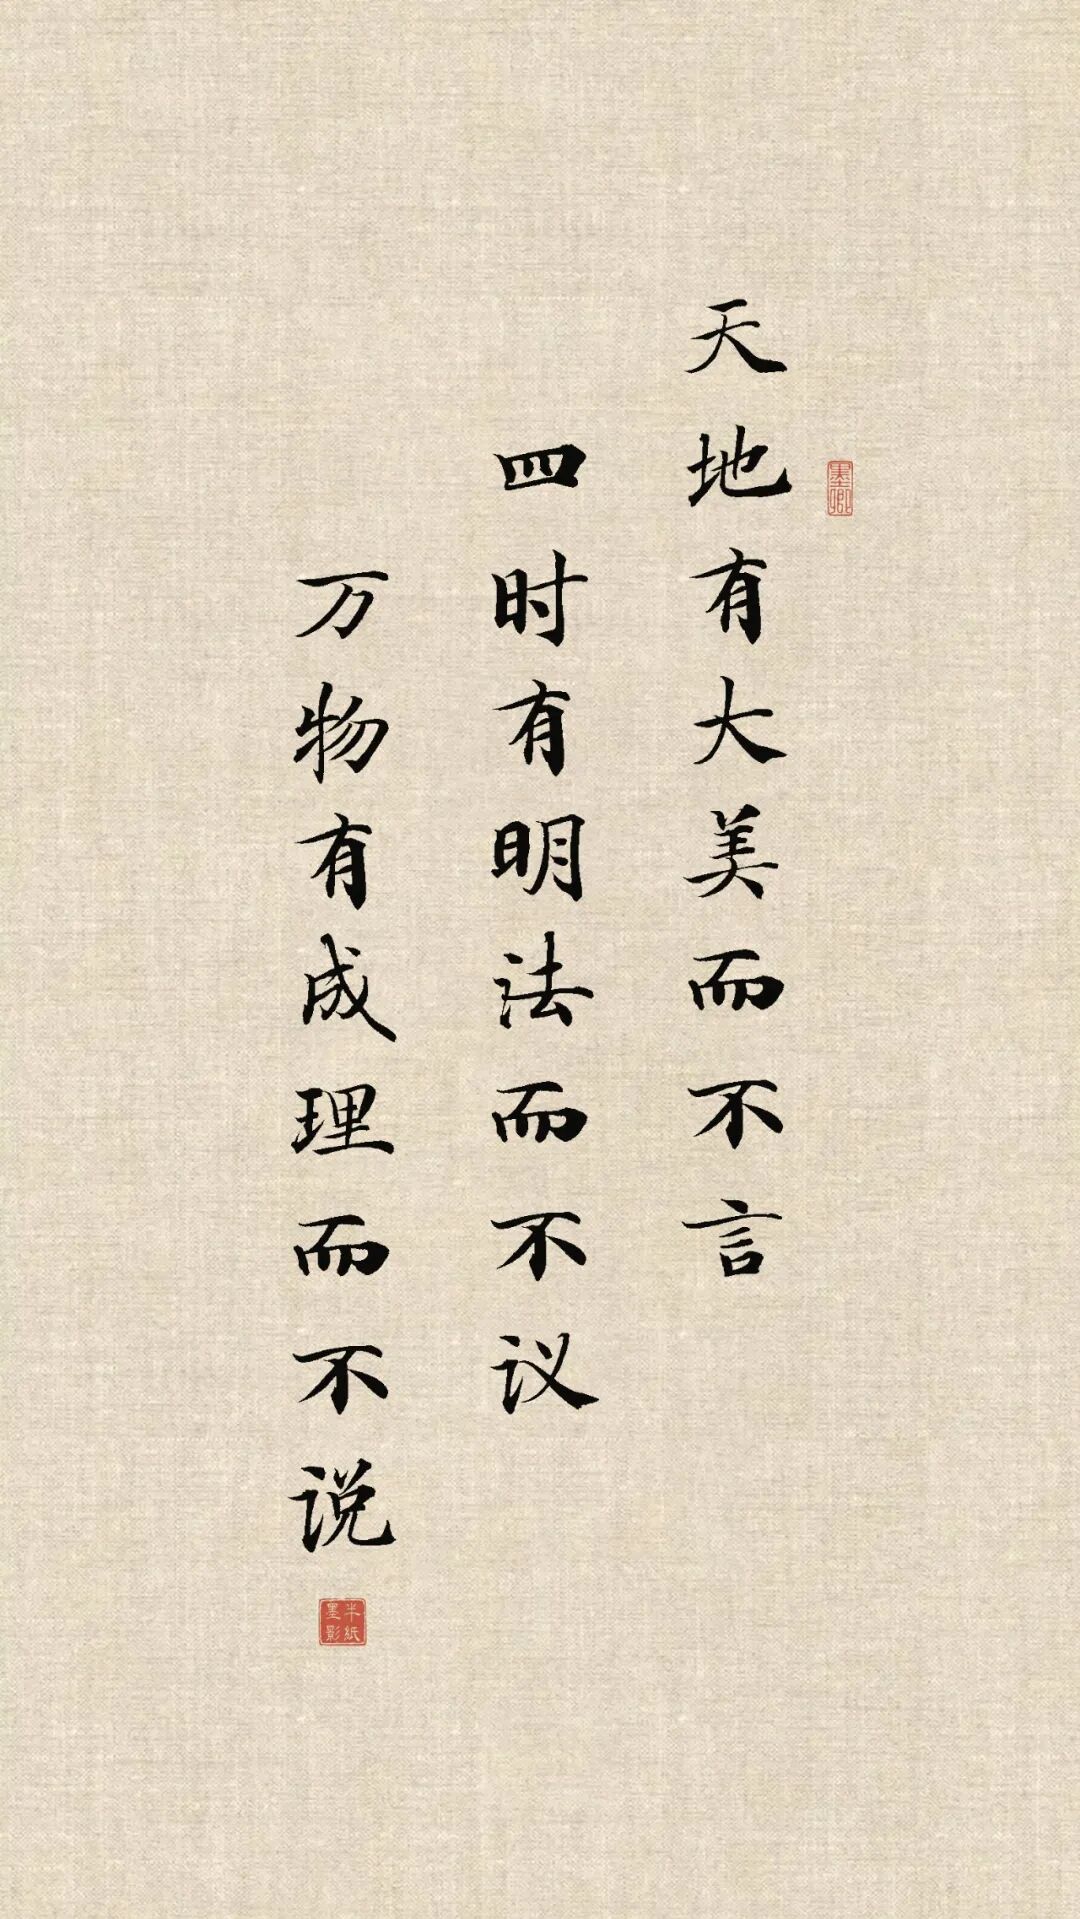 天地有大美而不言
四时有明法而不议
万物有成理而不说
墨卿
半纸
墨影